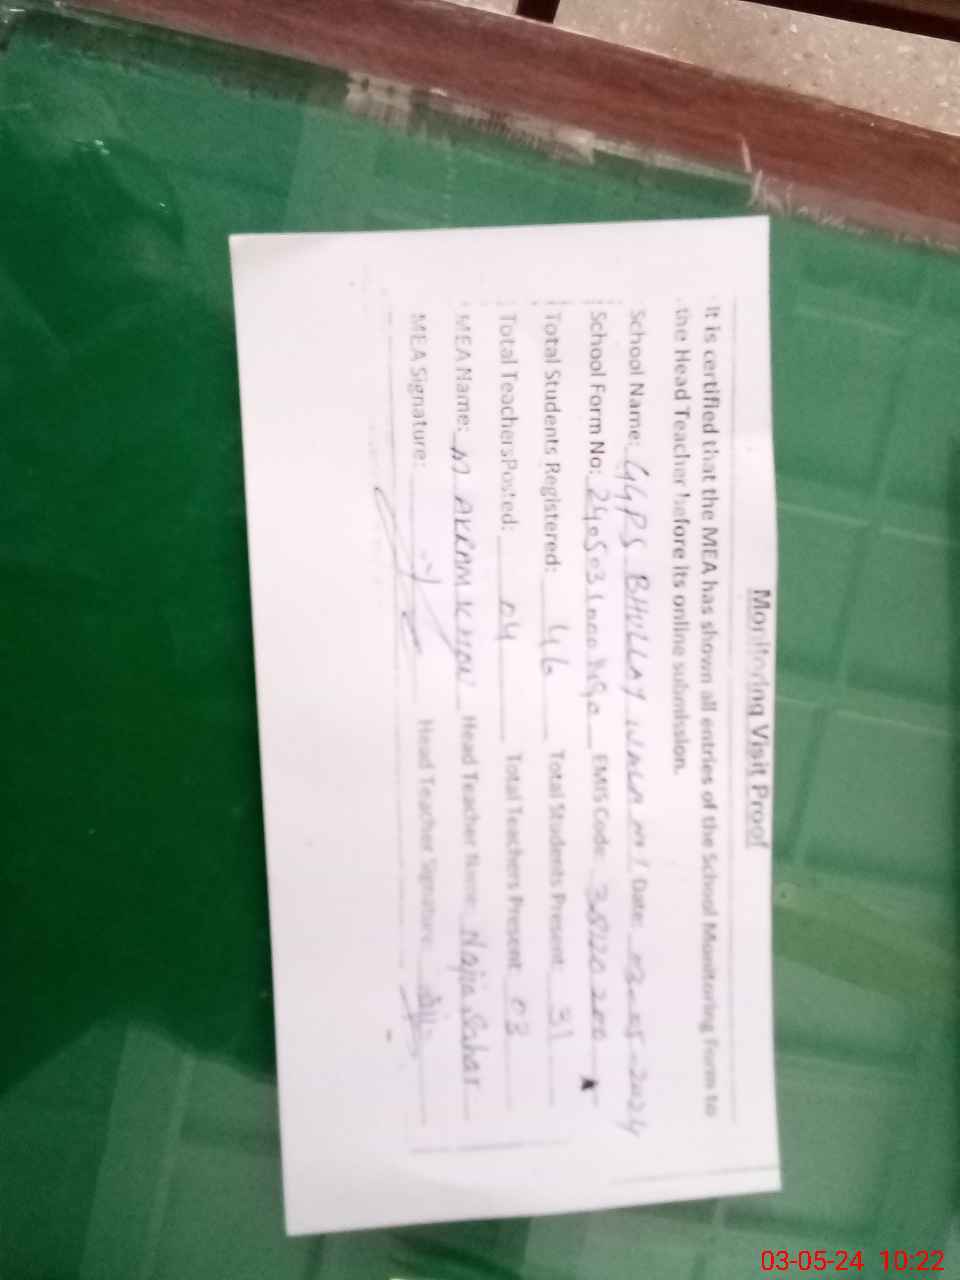 Monitoring Visit Proof
It is certified that the MEA has shown all entries of the School Monitoring Form to
the Head Teacher before its online submission.
School Name: GGPS BHULLAY WALA Date: 03-05-2024
School Form No: EMIS Code:
Total Students Registered: 46 Total Students Present 31
Total TeachersPosted: 04 Total Teachers Present 03
MEA Name: M AKRAM KHAN Head Teacher Name: Najia Sahar
MEA Signature: Head Teacher Signature
03-05-24 10:22